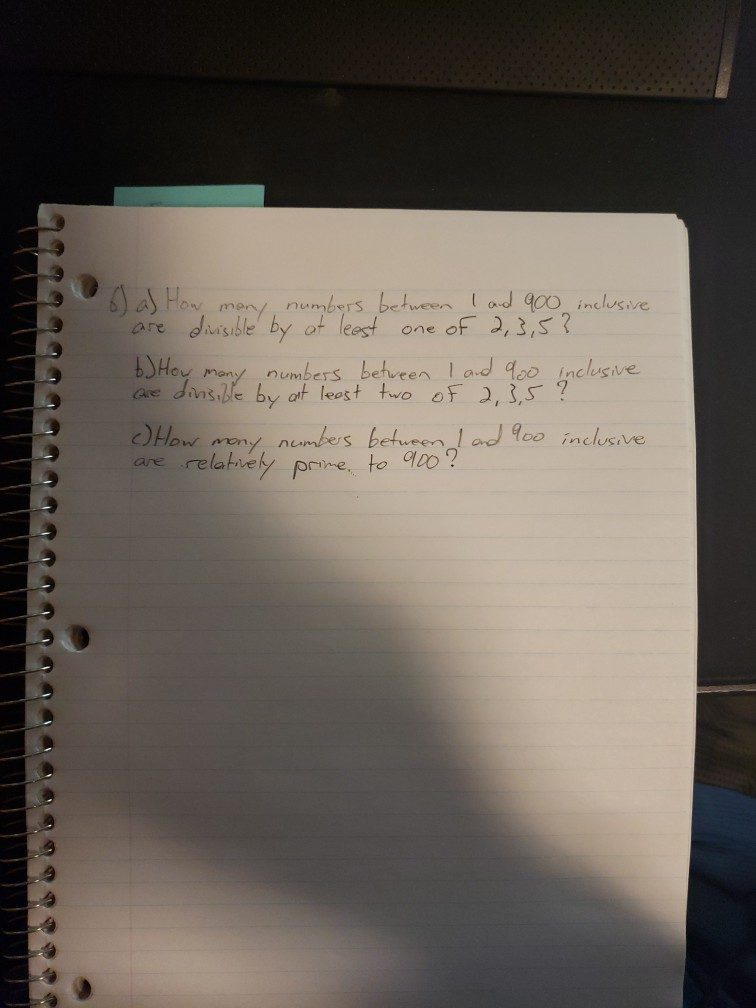 6) a) How many numbers between 1 and 900 inclusive
are divisible by at least one of 2,3,5?
b) How many numbers between 1 and 900 inclusive
are divisible by at least two of 2,3,5?
c) How many numbers between 1 and 900 inclusive
are relatively prime to 900?